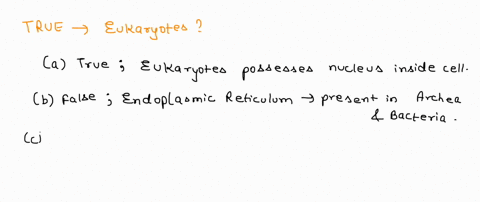 TRUE → Eukaryotes?
(a) True ; Eukaryotes possesses nucleus inside cell.
(b) false ; Endoplasmic Reticulum → present in Archea
& Bacteria.
(c)